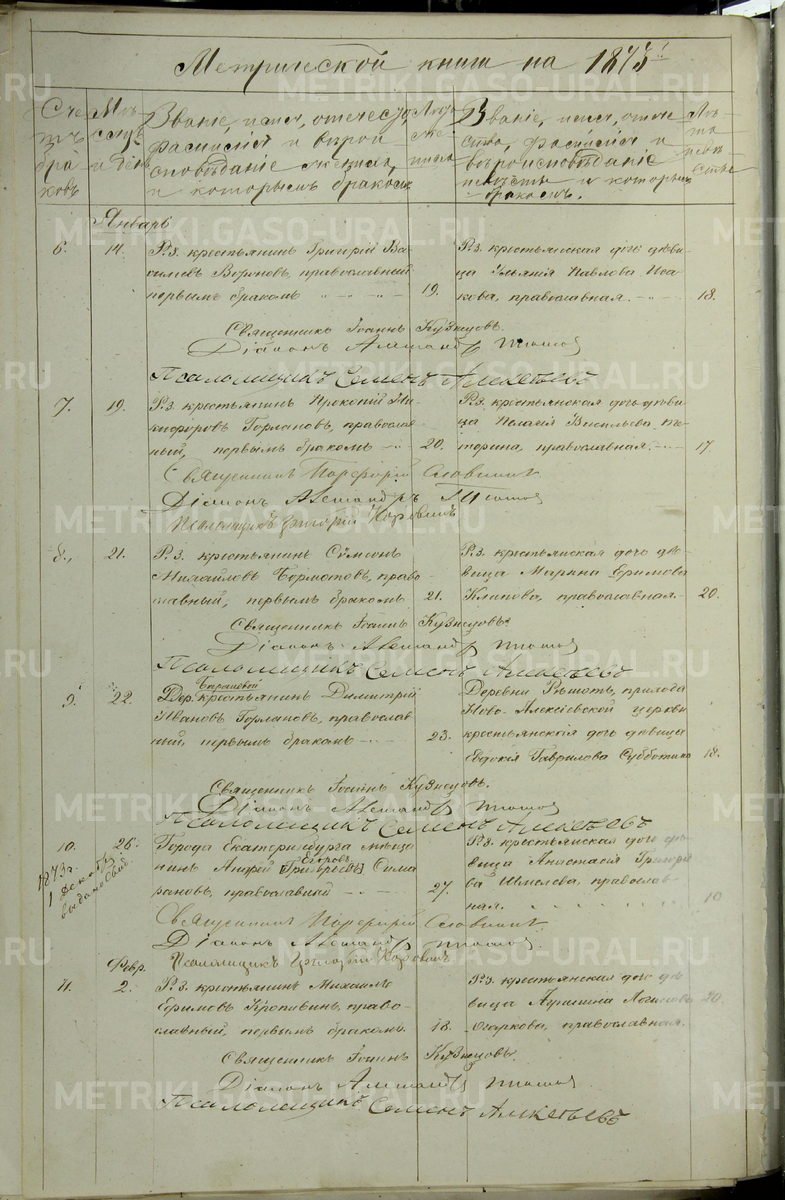 Метрической книги на 1873 г.
Счетъ браковъ
Мѣсяцъ и день
Званіе, имя, отчество,
фамилія и вѣроис-
повѣданіе жениха,
и которымъ бракомъ
Лѣта жениха
Званіе, имя, отче-
ство, фамилія и
вѣроисповѣданіе
невѣсты и которымъ
бракомъ.
Лѣта невѣсты
Январь
6. 14. Р. з. крестьянинъ Григорій Ва-
сильевъ Вороновъ, православный
первымъ бракомъ 19.
Р. з. крестьянская дочь дѣви-
ца Ульянія Павлова Иса-
кова, православная. 18.
Священникъ Іоаннъ Кузнецовъ.
Діаконъ Александръ Титовъ
Псаломщикъ Семенъ
7. 19. Р. з. крестьянинъ Прокопій Ни-
кифоровъ Горлановъ, православ-
ный, первымъ бракомъ 20.
Р. з. крестьянская дочь дѣви-
ца Пелагія Васильева
православная. 17.
Священникъ Порфирій Словцовъ
Діаконъ Александръ Титовъ
Псаломщикъ Григорій
8. 21. Р. з. крестьянинъ Сѵмеонъ
Михайловъ Бормотовъ, право-
славный, первымъ бракомъ 21.
Р. з. крестьянская дочь дѣ-
вица Марина Ефимова
Климова, православная. 20.
Священникъ Іоаннъ Кузнецовъ.
Діаконъ Александръ Титовъ
Псаломщикъ Семенъ
9. 22. Дер. крестьянинъ Димитрій
Ивановъ Горлановъ, православ-
ный, первымъ бракомъ 23.
Деревни Рѣшетъ, прихода
Ново-Алексіевской церкви
крестьянская дочь дѣвица
Евдокія Гаврилова Субботина 18.
Священникъ Іоаннъ Кузнецовъ.
Діаконъ Александръ Титовъ
Псаломщикъ Семенъ
10. 26. Города Екатеринбурга мѣща-
нинъ Андрей Григорьевъ Егоровъ Сима-
рановъ, православный 27.
Р. з. крестьянская дочь дѣ-
вица Анастасія Григорье-
ва Шмелева, православ-
ная. 19
1873 г.
1 Декабря
выдано Свид.
Священникъ Порфирій Словцовъ
Діаконъ Александръ Титовъ
Псаломщикъ Григорій
Февр.
11. 2. Р. з. крестьянинъ Михаилъ
Ефимовъ Кропивинъ, право-
славный, первымъ бракомъ. 18.
Р. з. крестьянская дочь дѣ-
вица Агриппина Логинова
православная. 20.
Священникъ Іоаннъ Кузнецовъ.
Діаконъ Александръ Титовъ
Псаломщикъ Семенъ
METRIKI.GASO-URAL.RU